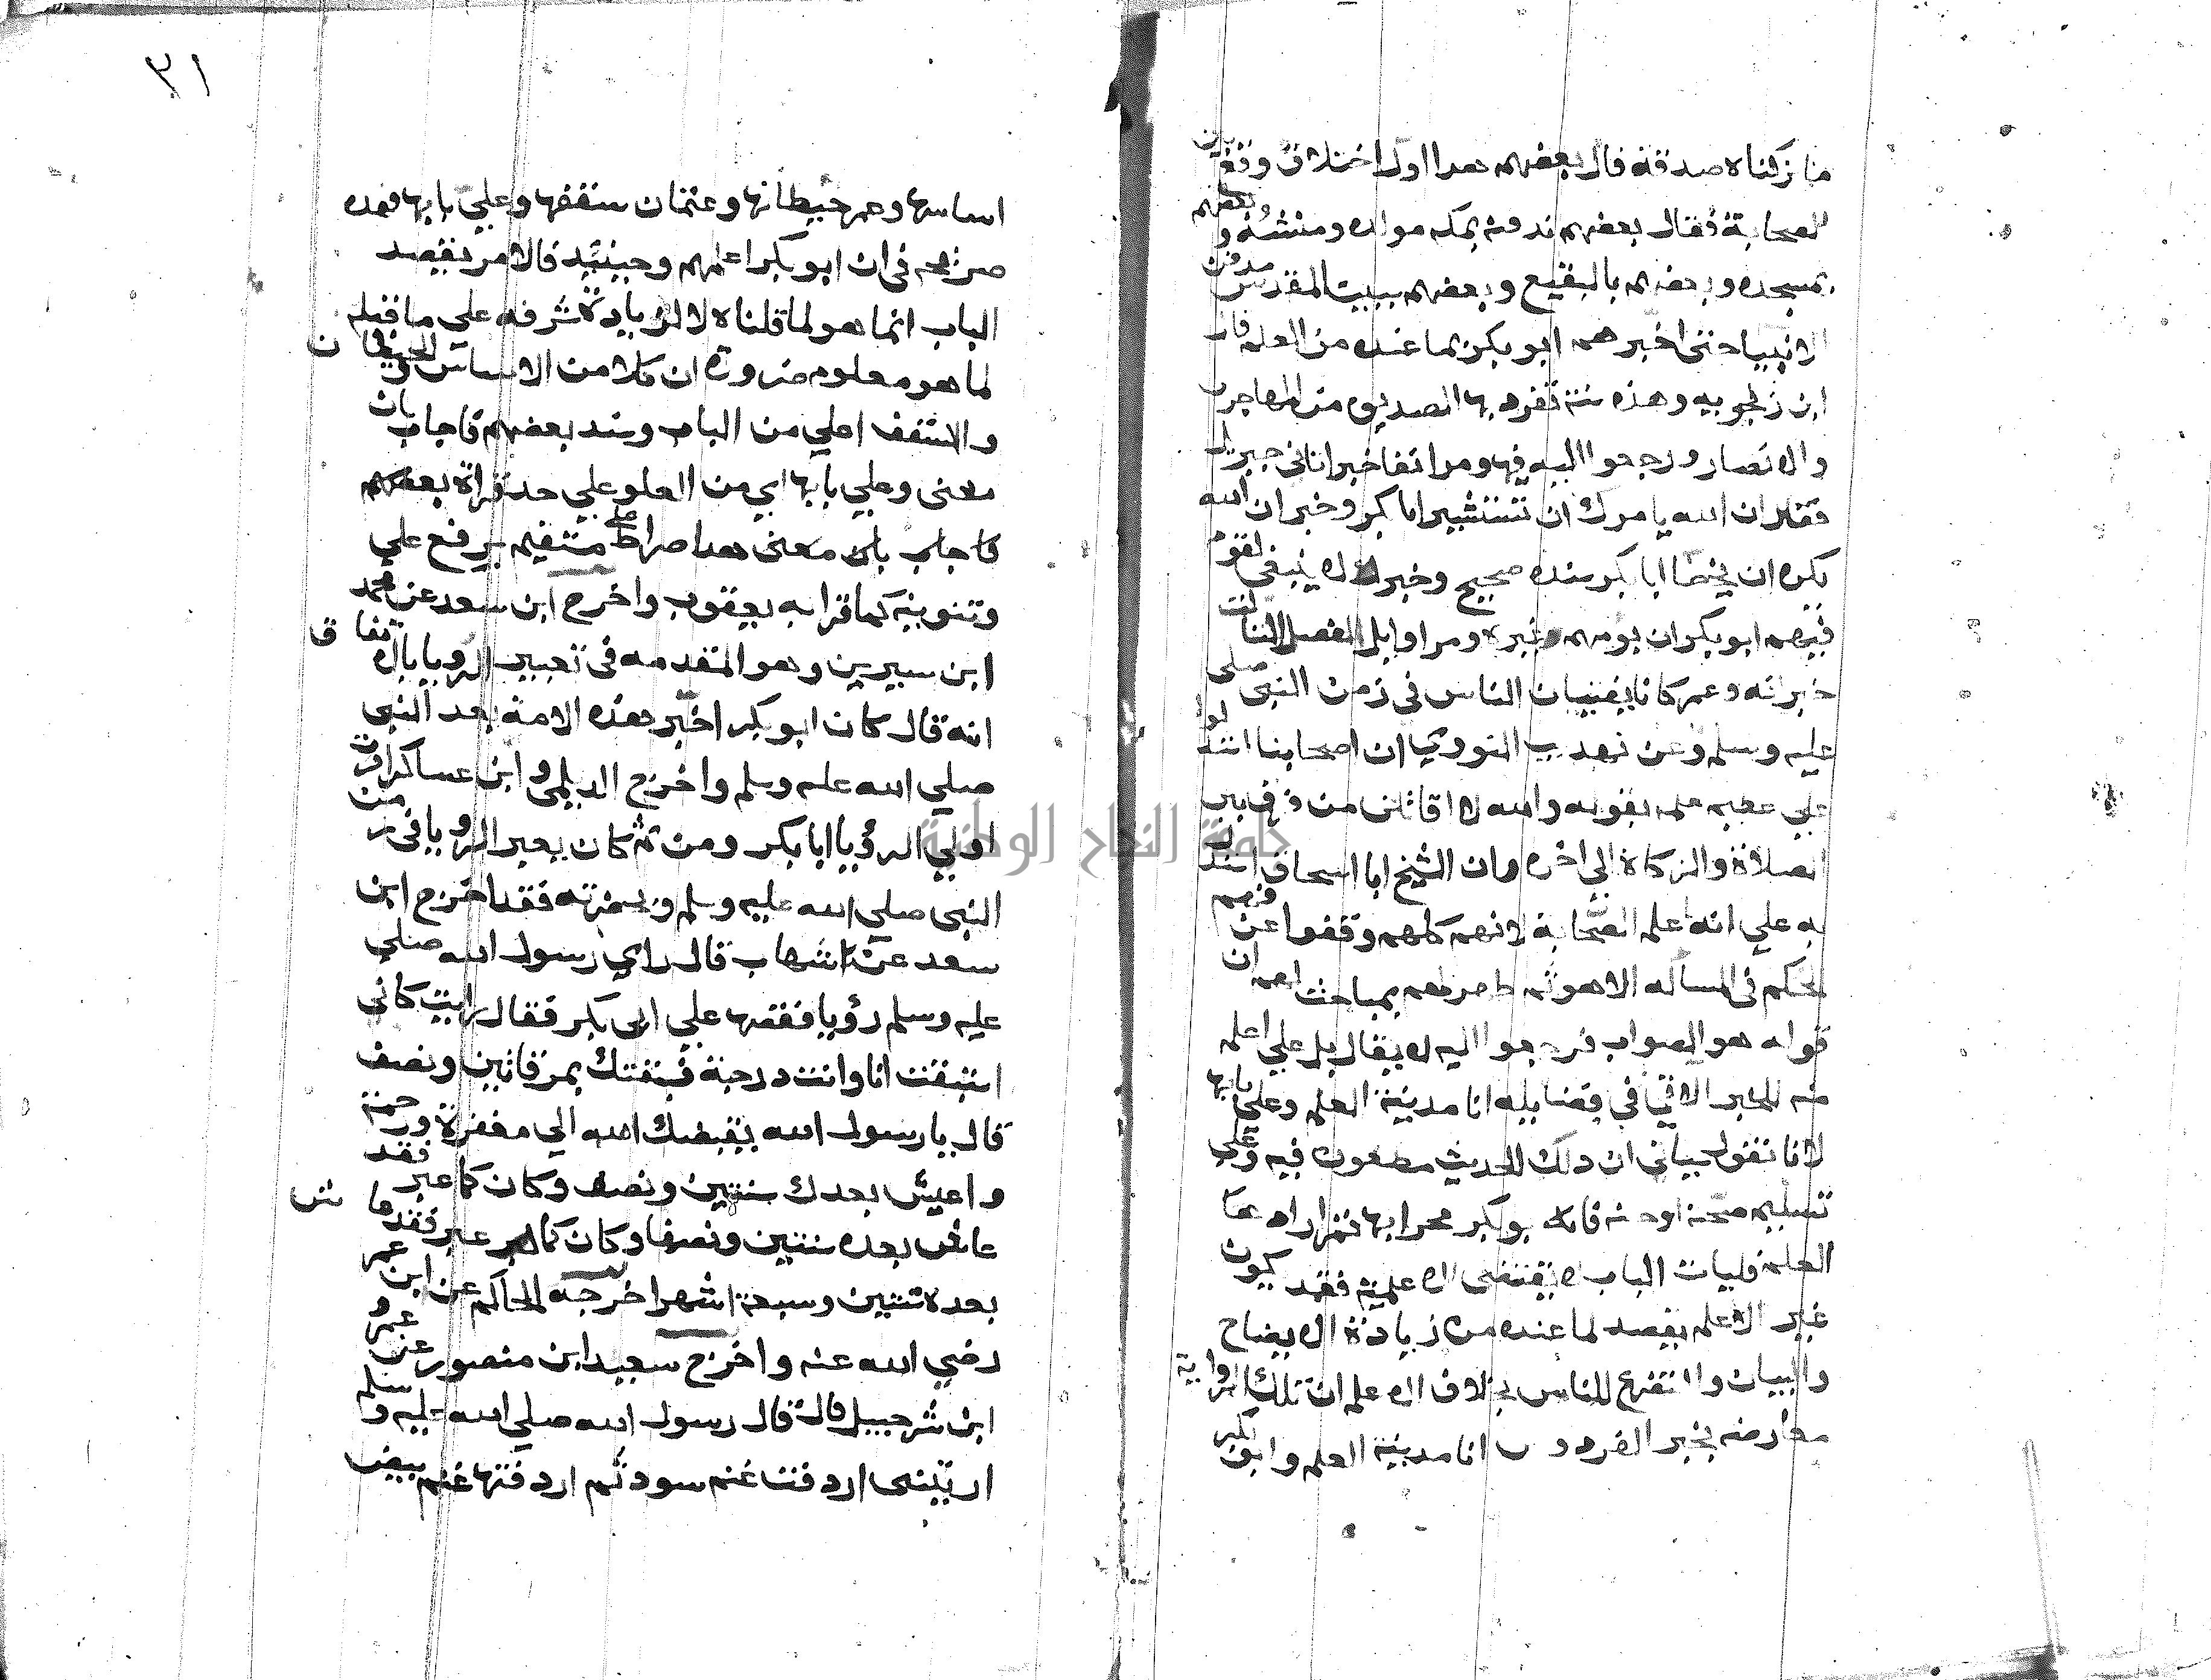 ما تركناه صدقة قال بعضهم هدا اول اختلاف وقع بين
الصحابة فقال بعضهم ندفنه بمكه مولده ومنشئه وبعضهم
بمسجده وبعضهم بالبقيع وبعضهم ببيت المقدس مدفن
الانبيا حتى اخبرهم ابو بكر بما عنده من العلم قال
ابن زنجويه وهذه سنة تفرد بها الصديق من المهاجرين
والانصار ورجعوا اليه فيها ومر انفا خبر اتاني جبريل
فقال ان الله يامرك ان تستشير ابا بكر وخبر ان الله
يكره ان يخطا ابا بكر سنده صحيح وخبر لا ينبغى لقوم
فيهم ابو بكر ان يومهم غيره ومر اوايل الفصل الثالث
خبر انه وعمر كانا يفتيان الناس فى زمن النبى صلى
عليه وسلم وعن تهذيب النووي ان اصحابنا استدلوا
علي عظيم علمه بقوله والله لا قاتلن من فرق بين
الصلاة والزكاة الي اخره وان الشيخ ابا اسحاق استدل
به علي انه اعلم الصحابة لانهم كلهم وقفوا عن فهم
الحكم فى المساله الا هو ثم ظهر لهم بمباحثته لهم ان
قوله هو الصواب فرجعوا اليه لا يقال بل علي اعلم
منه للخبر الاتي في فضايله انا مدينة العلم وعلي بابها
لانا نقول سياتى ان دلك الحديث مطعون فيه وعلي
تسليم صحته او حسنه فابو بكر محرابها
العلم فليات الباب لا يقتضى الاعلمية فقد يكون
غير الاعلم يقصد لما عنده من زيادة الايضاح
والبيان والتفرغ للناس بخلاف الاعلم ان تلك الرواية
معارضه بخبر الفردوس انا مدينة العلم وابو بكر
٣١
اساسها وعمر حيطانها وعثمان سقفها وعلي بابها فهده
صريحه فى ان ابو بكر اعلمهم وحينئد فالامر بقصد
الباب انما هو لما قلناه لا لزيادة شرفه علي ما قبله
لما هو معلوم ضرورة ان كلا من الاساس والحيطان
والسقف اعلي من الباب وشد بعضهم فاجاب بان
معنى وعلي بابها اي من العلو علي حد قراة بعضهم
فاجاب بان معنى هدا صراط علي مستقيم برفع علي
وتنوينه كما قرا به يعقوب واخرج ابن سعد عن محمد
ابن سيرين وهو المتقدمه فى تعبير الرويا بالاتفاق
انه قال كان ابو بكر اخبر هذه الامة بعد النبى
صلي الله عليه وسلم واخرج الديلمى وابن عساكر امرت
اولي الرؤيا ابا بكر ومن ثم كان يعبر الرويا فى زمن
النبى صلي الله عليه وسلم وبحضرته فقد اخرج ابن
سعد عن ابن شهاب قال راي رسول الله صلي
عليه وسلم رؤيا فقصها علي ابى بكر فقال رايت كانى
استبقت انا وانت درجة فسبقتك بمرقاتين ونصف
قال يا رسول الله يقبضك الله الي مغفرة ورحمة
واعيش بعدك سنتين ونصف وكان كما عبر فقد
عاش بعده سنتين ونصفا وكان كما عبر فقد عاش
بعده سنتين وسبعة اشهر اخرجه الحاكم عن ابن عمر
رضي الله عنه واخرج سعيد ابن منصور عن عمرو
ابن شرحبيل قال قال رسول الله صلي الله عليه وسلم
اريتنى اردفت غنم سود ثم اردفتها غنم بيض
جامعة النجاح الوطنية